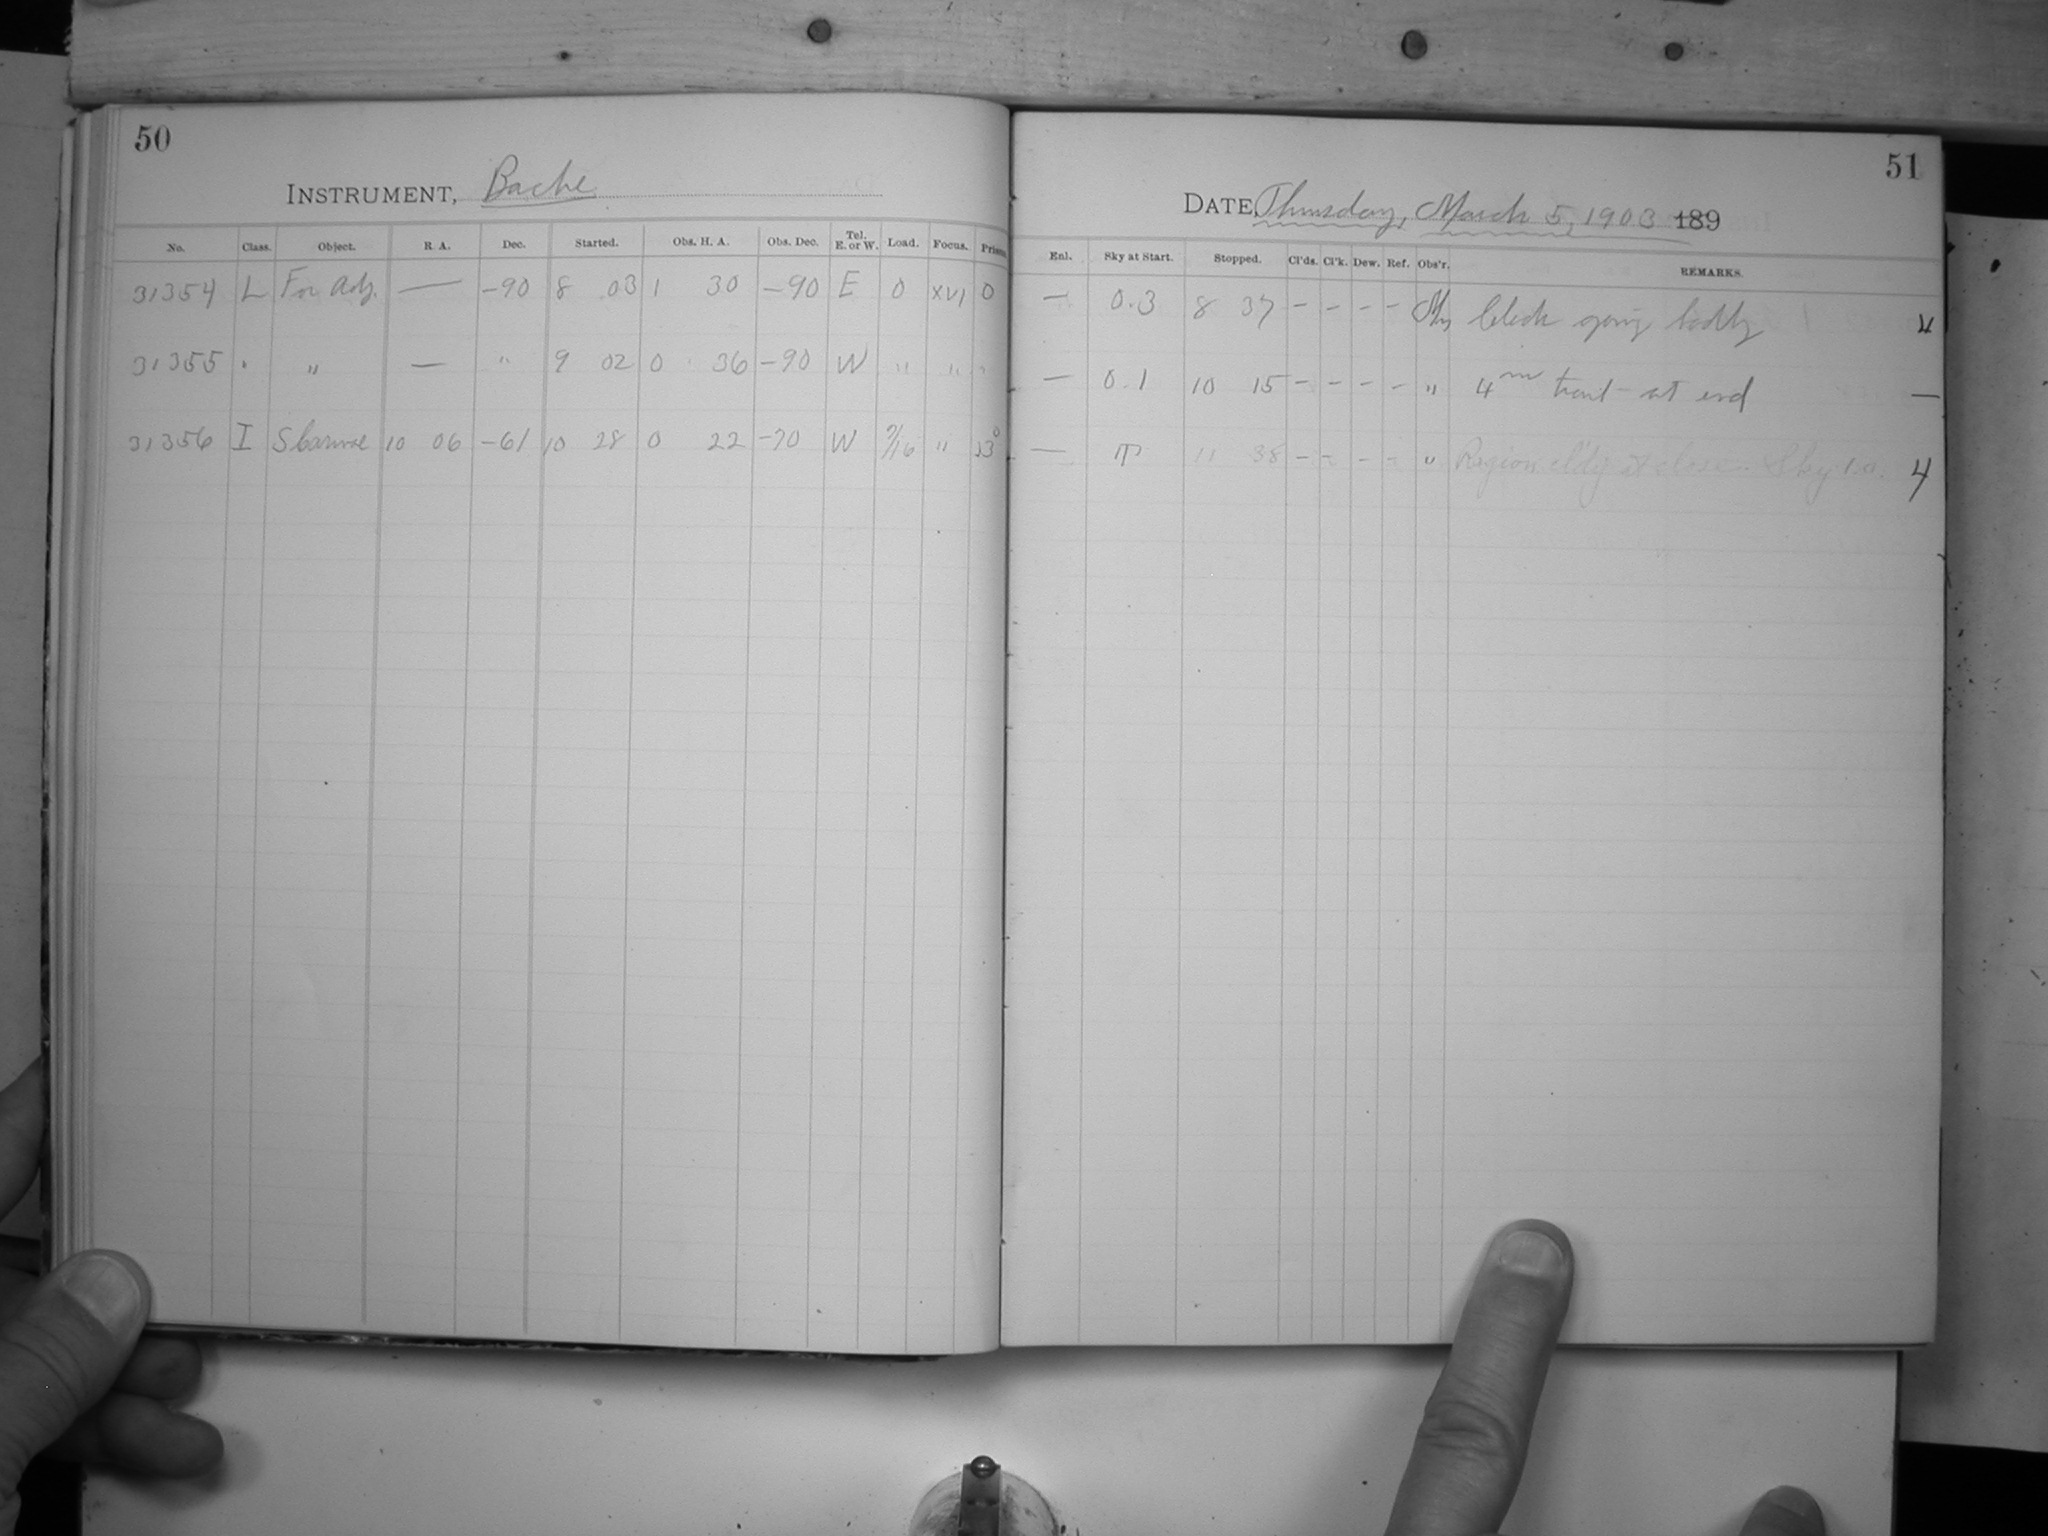 50
INSTRUMENT, Bache
No. Class. Object. R. A. Dec. Started. Obs. H. A. Obs. Dec. Tel. E. or W. Load. Focus. Prism
31354 L For Adj. — -90 8 03 1 30 -90 E 0 XVI 0
31355 " " — " 9 02 0 36 -90 W " " "
31356 I S Carinae 10 06 -61 10 28 0 22 -70 W 7/16 " 13°
51
DATE, Thursday, March 5, 1903 189
Enl. Sky at Start. Stopped. Cl'ds. Cl'k. Dew. Ref. Obs'r. REMARKS.
— 0.3 8 37 - - - - Clock going badly 4
— 0.1 10 15 - - - - " 4m trail at end —
— 11 38 - - - - " Region cl'dy at close. Sky 4